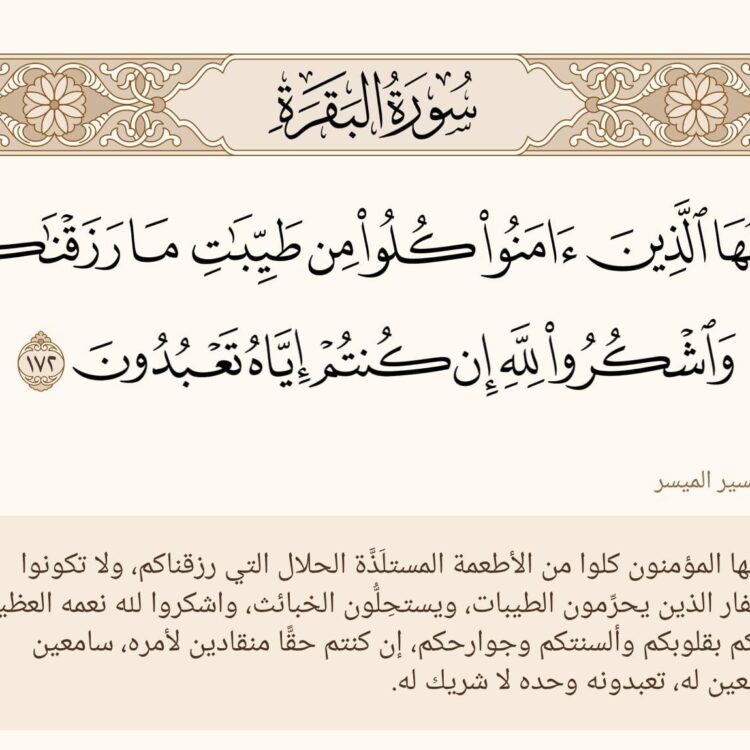 سُورَةُ البَقَرَةِ
ٱلَّذِينَ ءَامَنُوا۟ كُلُوا۟ مِن طَيِّبَـٰتِ مَا
وَٱشْكُرُوا۟ لِلَّهِ إِن كُنتُمْ إِيَّاهُ تَعْبُدُونَ ١٧٢
الميسر
المؤمنون كلوا من الأطعمة المستلَذَّة الحلال التي رزقناكم، ولا تكونوا
الذين يحرِّمون الطيبات، ويستحِلُّون الخبائث، واشكروا لله نعمه
بقلوبكم وألسنتكم وجوارحكم، إن كنتم حقًّا منقادين لأمره، سامعين
له، تعبدونه وحده لا شريك له.